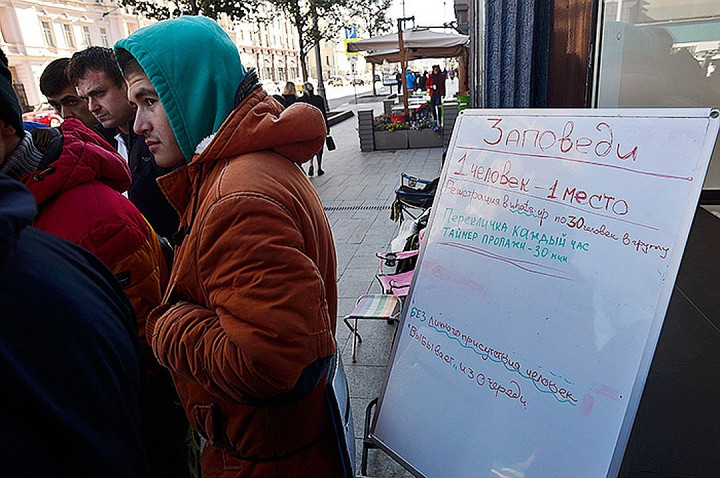 Заповеди
1 человек - 1 место
Регистрация в whats up по 30 человек в группу
Перекличка каждый час
Таймер пропажи - 30 мин
БЕЗ личного присутствия человек
"Выбывает" из очереди